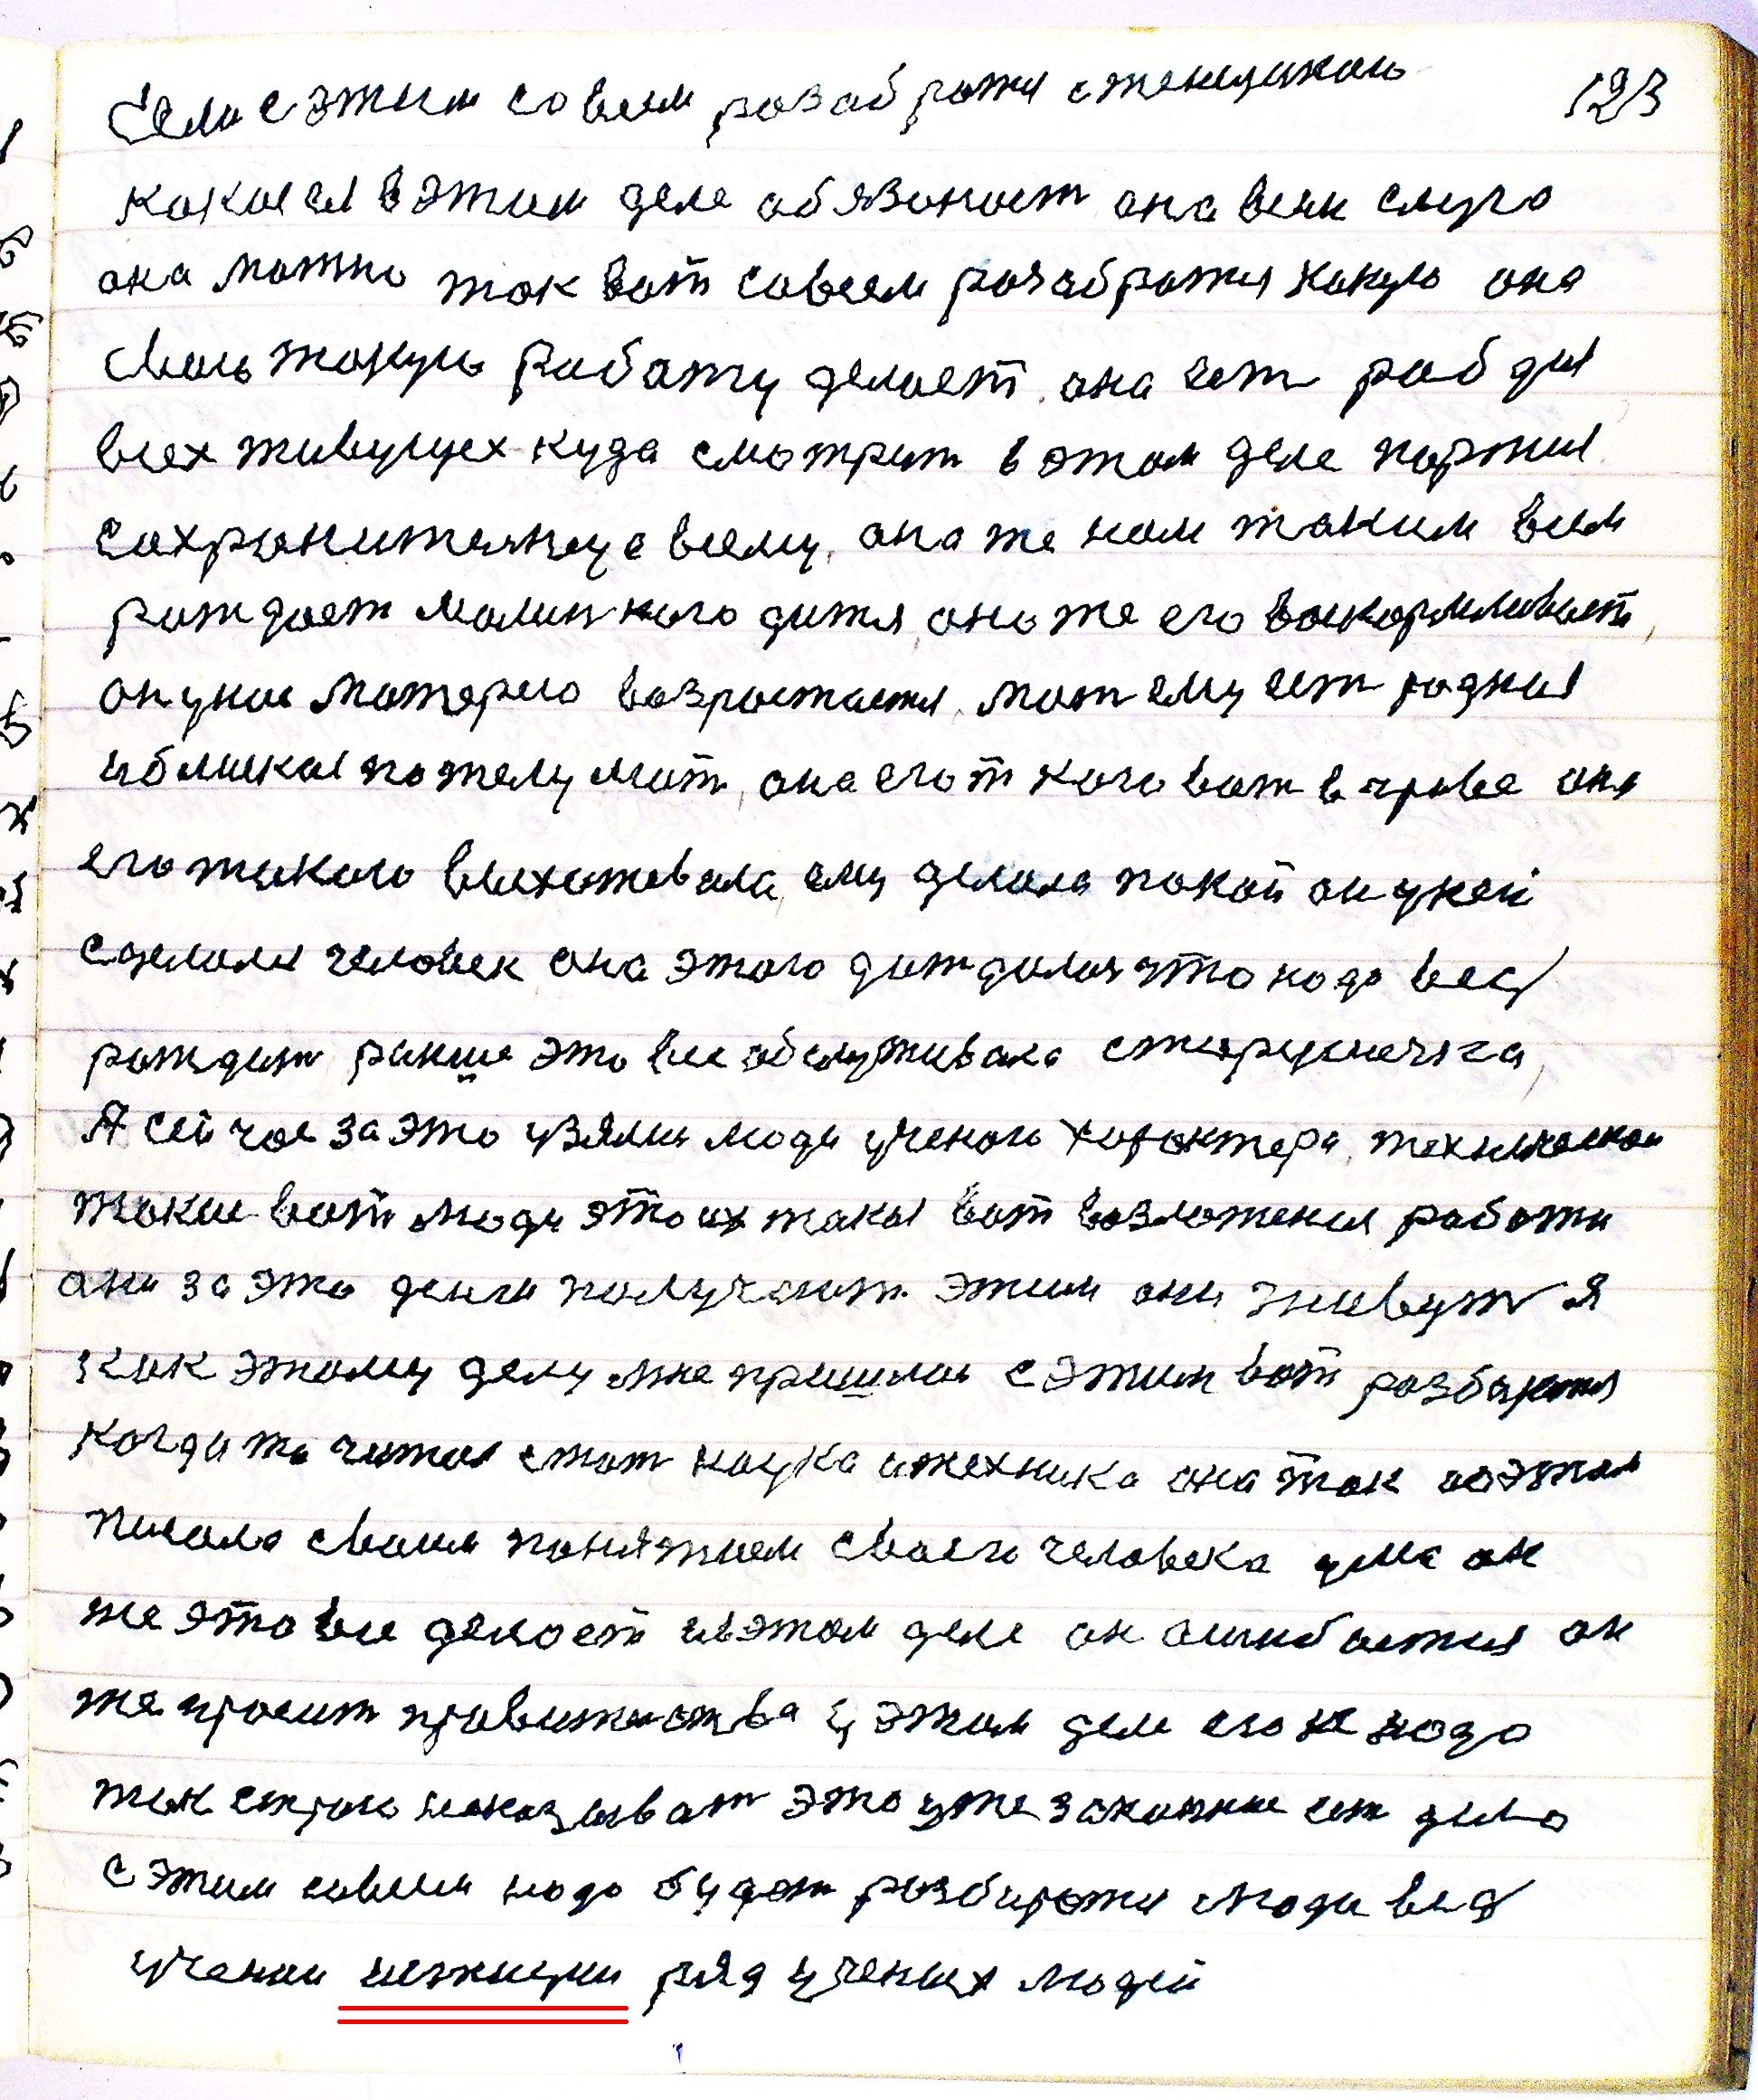 Если с этим со всем розаб ротя с женщиною 123
какая ея в этим деле обязоност она всем слуга
она можно ток вот совсем розабротя какую она
свою такую работу делает, она ест роб для
всех живущех куда смотрит в этом деле портия
сохранителнуе всему, она же нам таким всем
рождает малинкого дитя, она же его воскормливает,
он у ние матерею возростается, мат ему ест родная
и блиская по телу мат, она его т кого вот в чреве она
его такого выхожевала, ему делала покой он у ней
сделался человек она этого дождалася что надо вед
рождат ранше это все обслуживала старушечка,
А сейчас за это узялис люди ученаи характера, техническаи
такие вот люди это их такая вот возложения работи
они за это денги получают. этим они живут я
как этому делу мне пришлос с этим вот разбиратя
когда то читая стат наука и техника она так об этом
писала своим понятием своего человека ума он
же это все делает и в этом деле он ошибается он
же просит правителства у этом деле его не надо
так строго наказыват это уже законние ест дело
с этим совсем надо будет розбиротя люди вед
учении ряд учених людей